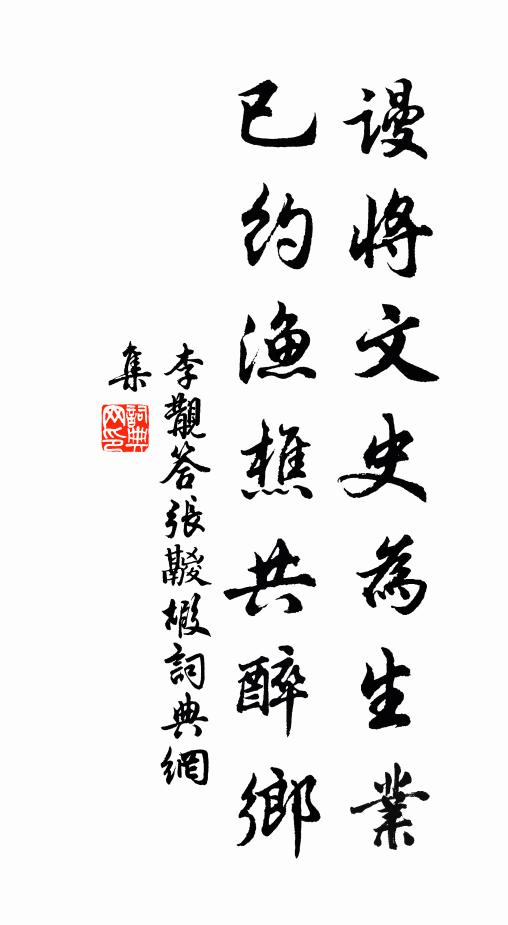 謾將文史為生業
已約漁樵共醉鄉
李答張詞典網
集
詞典
网印